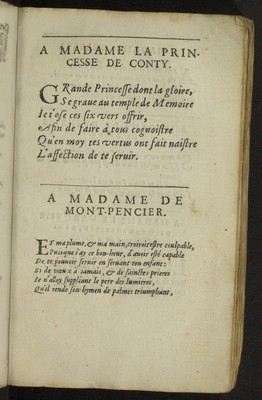 A MADAME LA PRIN-
CESSE DE CONTY.
GRande Princesse dont la gloire,
Se graue au temple de Memoire
Ie t'ose ces six vers offrir,
Afin de faire à tous cognoistre
Qu'en moy tes vertus ont fait naistre
L'affection de te seruir.
A MADAME DE
MONT-PENCIER.
ET ma plume, & ma main, croiroit estre coulpable,
Puisque i'ay ce bon-heur, d'auoir esté capable
De te pouuoir seruir en seruant ton enfant:
Si de vœux à iamais, & de sainctes prieres
Ie n'allay suppliant le pere des lumieres,
Qu'il rende son hymen de palmes triumphant,